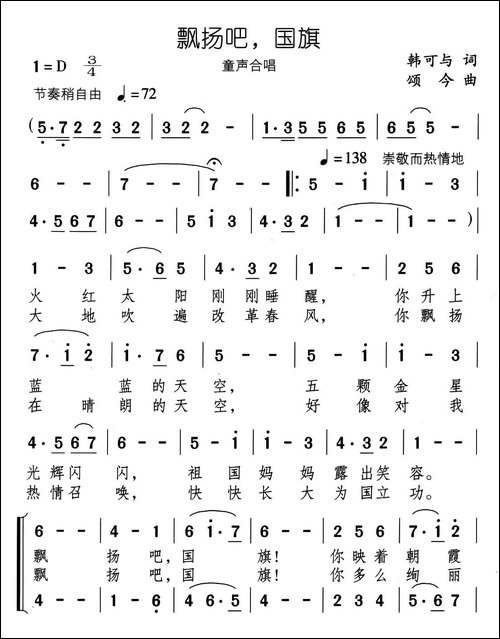 飘扬吧，国旗
1=D 3/4 童声合唱 韩可与 词
节奏稍自由 ♩=72 颂 今 曲
(5·7 2 2 3 2 | 3 2 2 – | 1·3 5 5 6 5 | 6 5 5 – |
♩=138 崇敬而热情地
6 – – | 7 – – | 7 – – ‖: 5 – i | 1 – 3 |
4·5 6 7 | 6 – – | 5 i 3 | 4·3 2 | 1 – – | 1 – – ) |
1 – 3 | 5·6 5 | 5 7 3 | 4·3 2 | 1 – – | 2 5 6 |
火 红 太 阳 刚 刚 睡 醒， 你 升 上
大 地 吹 遍 改 革 春 风， 你 飘 扬
7·i 2 | 1·7 6 | 5 – – | 6 – i | 5 – 3 |
蓝 蓝 的 天 空， 五 颗 金 星
在 晴 朗 的 天 空， 好 像 对 我
4·5 6 7 | 6 – – | 5 – i | 1 – 3 | 4·3 2 | 1 – – |
光 辉 闪 闪， 祖 国 妈 妈 露 出 笑 容。
热 情 召 唤， 快 快 长 大 为 国 立 功。
6 – – | 4 – 1 | 6 i·7 | 6 – – | 2 5 6 | 7·i 2 |
飘 扬 吧，国 旗！ 你 映 着 朝 霞
飘 扬 吧，国 旗！ 你 多 么 绚 丽
4 – – | 1 – 6 | 4 6·5 | 4 – – | 2 5 6 | 5·6 7 |